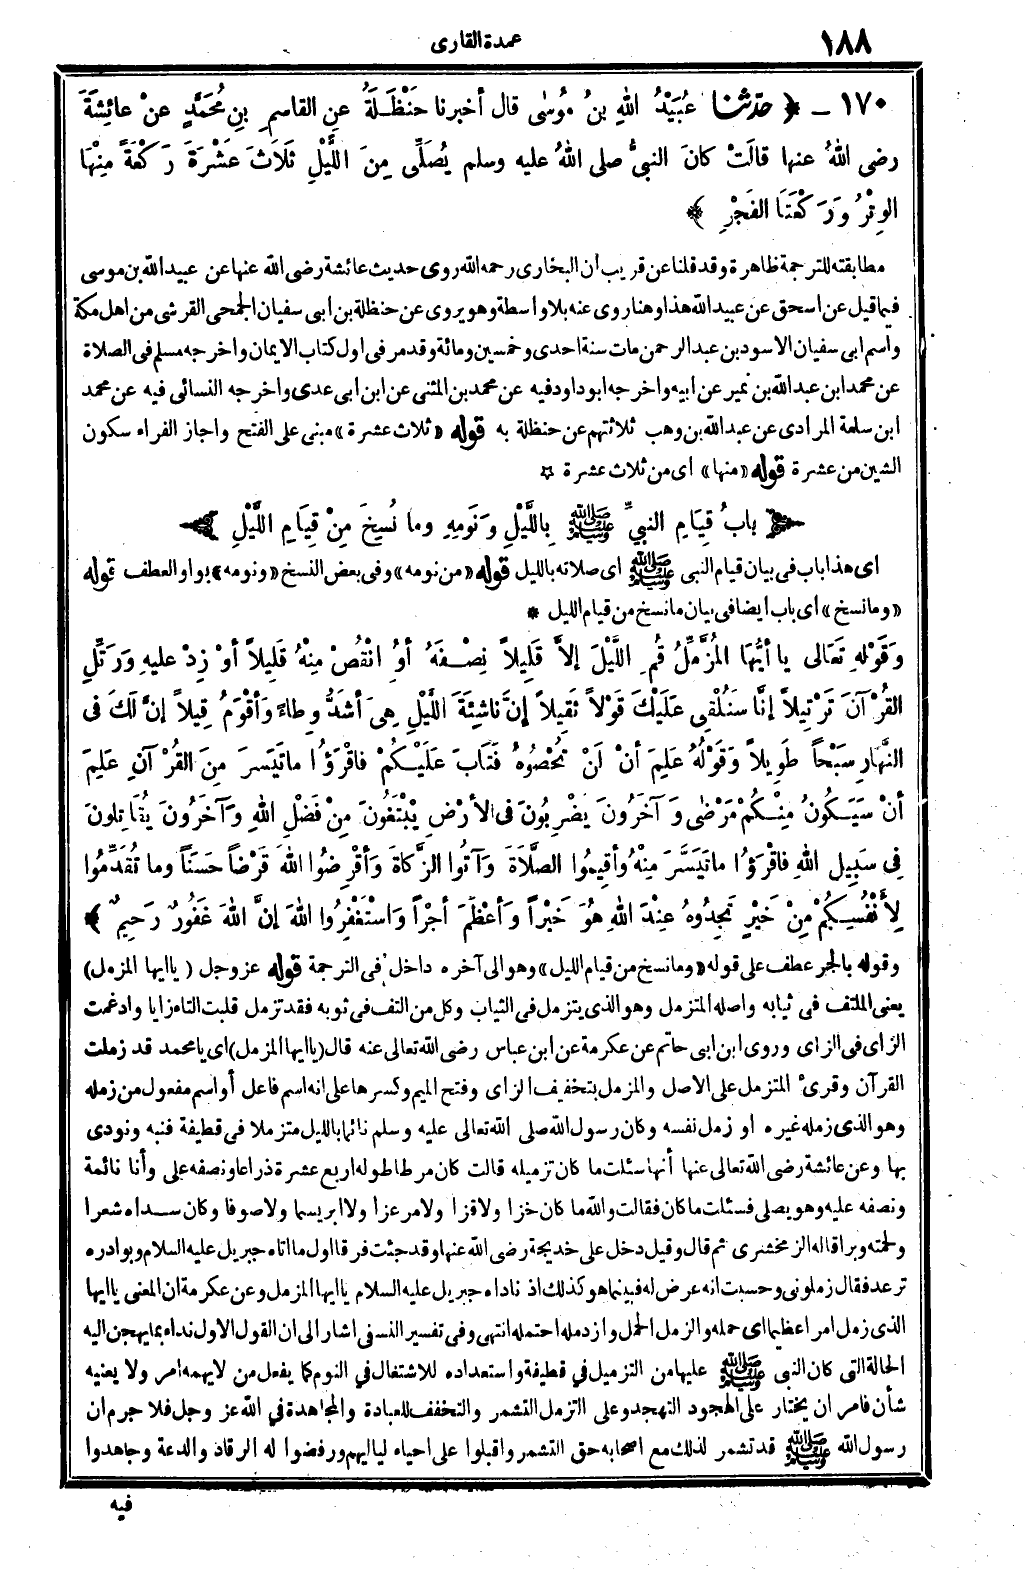 ١٨٨
عمدة القارى
١٧٠ ـ ﴿ حدّثنا عُبَيْدُ اللهِ بنُ مُوسٰى قال أخبرنا حَنْظَلَةُ عنِ القاسمِ بنِ مُحَمَّدٍ عنْ عائِشَةَ
رضى اللهُ عنها قالَتْ كانَ النبىُّ صلى اللهُ عليه وسلم يُصَلِّى مِنَ اللَّيْلِ ثَلَاثَ عَشْرَةَ رَكْعَةً مِنْهَا
الوِتْرُ وَرَكْعَتَا الفَجْرِ ﴾
مطابقته للترجمة ظاهرة وقد قلنا عن قريب أن البخارى رحمه الله روى حديث عائشة رضى الله عنها عن عبيدالله بن موسى
فيما قيل عن اسحق عن عبيدالله هذا وهنا روى عنه بلا واسطة وهو يروى عن حنظلة بن ابى سفيان الجمحى القرشى من اهل مكة
واسم ابى سفيان الاسود بن عبد الرحمن مات سنة احدى وخمسين ومائة وقد مر فى اول كتاب الايمان واخرجه مسلم فى الصلاة
عن محمد ابن عبدالله بن نمير عن ابيه واخرجه ابو داود فيه عن محمد بن المثنى عن ابن ابى عدى واخرجه النسائى فيه عن محمد
ابن سلمة المرادى عن عبدالله بن وهب ثلاثتهم عن حنظلة به قوله «ثلاث عشرة» مبنى على الفتح واجاز الفراء سكون
الشين من عشرة قوله «منها» اى من ثلاث عشرة ☆
﴿ بابُ قِيَامِ النبىِّ ﷺ بِاللَّيْلِ وَنَومِهِ وما نُسِخَ مِنْ قِيَامِ اللَّيْلِ ﴾
اى هذا باب فى بيان قيام النبى ﷺ اى صلاته بالليل قوله «من نومه» وفى بعض النسخ «ونومه» بواو العطف قوله
«وما نسخ» اى باب ايضا فى بيان ما نسخ من قيام الليل *
وَقَوْلِهِ تَعَالى يا أيُّهَا المُزَّمِّلُ قُمِ اللَّيْلَ إلاَّ قَلِيلاً نِصْفَهُ أوُ انْقُصْ مِنْهُ قَلِيلاً أوْ زِدْ عليهِ وَرَتِّلِ
القُرْآنَ تَرْتِيلاً إنَّا سَنُلْقِى عَلَيْكَ قَوْلاً ثَقِيلاً إنَّ ناشِئَةَ اللَّيْلِ هِىَ أشَدُّ وِطاءً وَأقْوَمُ قِيلاً إنَّ لَكَ فى
النَّهَارِ سَبْحاً طَوِيلاً وَقَوْلُهُ عَلِمَ أنْ لَنْ تُحْصُوهُ فَتَابَ عَلَيْكُمْ فاقْرَؤُا ما تَيَسرَ مِنَ القُرْآنِ عَلِمَ
أنْ سَيَكُونُ مِنْكُمْ مَرْضٰى وَآخَرُونَ يَضْرِبُونَ فى الأرْضِ يَبْتَغُونَ مِنْ فَضْلِ اللهِ وَآخَرُونَ يُقَاتِلونَ
فِى سَبِيلِ اللهِ فاقْرَؤُا ما تَيَسَّرَ مِنْهُ وأقِيمُوا الصَّلَاةَ وَآتُوا الزَّكاةَ وَأقْرِضُوا اللهَ قَرْضاً حَسَناً وما تُقَدِّمُوا
لِأَنْفُسِكُمْ مِنْ خَيْرٍ تَجِدُوهُ عِنْدَ اللهِ هُوَ خَيْراً وَأعْظَمَ أجْراً وَاسْتَغْفِرُوا اللهَ إنَّ اللهَ غَفُورٌ رَحِيمٌ ﴾
وقوله بالجر عطف على قوله «وما نسخ من قيام الليل» وهو الى آخره داخل فى الترجمة قوله عز وجل (يا ايها المزمل)
يعنى الملتف فى ثيابه واصله المتزمل وهو الذى يتزمل فى الثياب وكل من التف فى ثوبه فقد تزمل قلبت التاء زايا وادغمت
الزاى فى الزاى وروى ابن ابى حاتم عن عكرمة عن ابن عباس رضى الله تعالى عنه قال (يا ايها المزمل) اى يا محمد قد زملت
القرآن وقرىء المتزمل على الاصل والمزمل بتخفيف الزاى وفتح الميم وكسرها على انه اسم فاعل أو اسم مفعول من زمله
وهو الذى زمله غيره او زمل نفسه وكان رسول الله صلى الله تعالى عليه وسلم نائما بالليل متزملا فى قطيفة فنبه ونودى
بها وعن عائشة رضى الله تعالى عنها أنها سئلت ما كان تزميله قالت كان مرطا طوله اربع عشرة ذراعا ونصفه على وأنا نائمة
ونصفه عليه وهو يصلى فسئلت ما كان فقالت والله ما كان خزا ولا قزا ولا مرعزا ولا ابريسما ولا صوفا وكان سداه شعرا
ولحمته وبرا قاله الزمخشرى ثم قال وقيل دخل على خديجة رضى الله عنها وقد جئت فرقا اول ما اتاه جبريل عليه السلام وبوادره
ترعد فقال زملونى وحسبت انه عرض له فبينما هو كذلك اذ ناداه جبريل عليه السلام يا ايها المزمل وعن عكرمة ان المعنى يا ايها
الذى زمل امرا عظيما اى حمله والزمل الحمل وازدمله احتمله انتهى وفى تفسير النسفى اشار الى ان القول الاول نداء بما يهجن اليه
الحالة التى كان النبى ﷺ عليها من التزميل فى قطيفة واستعداده للاشتغال فى النوم كما يفعل من لا يهمه امر ولا يعنيه
شأن فامر ان يختار على الهجود التهجد وعلى التزمل التشمر والتخفف للعبادة والمجاهدة فى الله عز وجل فلا جرم ان
رسول الله ﷺ قد تشمر لذلك مع اصحابه حق التشمر واقبلوا على احياء لياليهم ورفضوا له الرقاد والدعة وجاهدوا
فيه